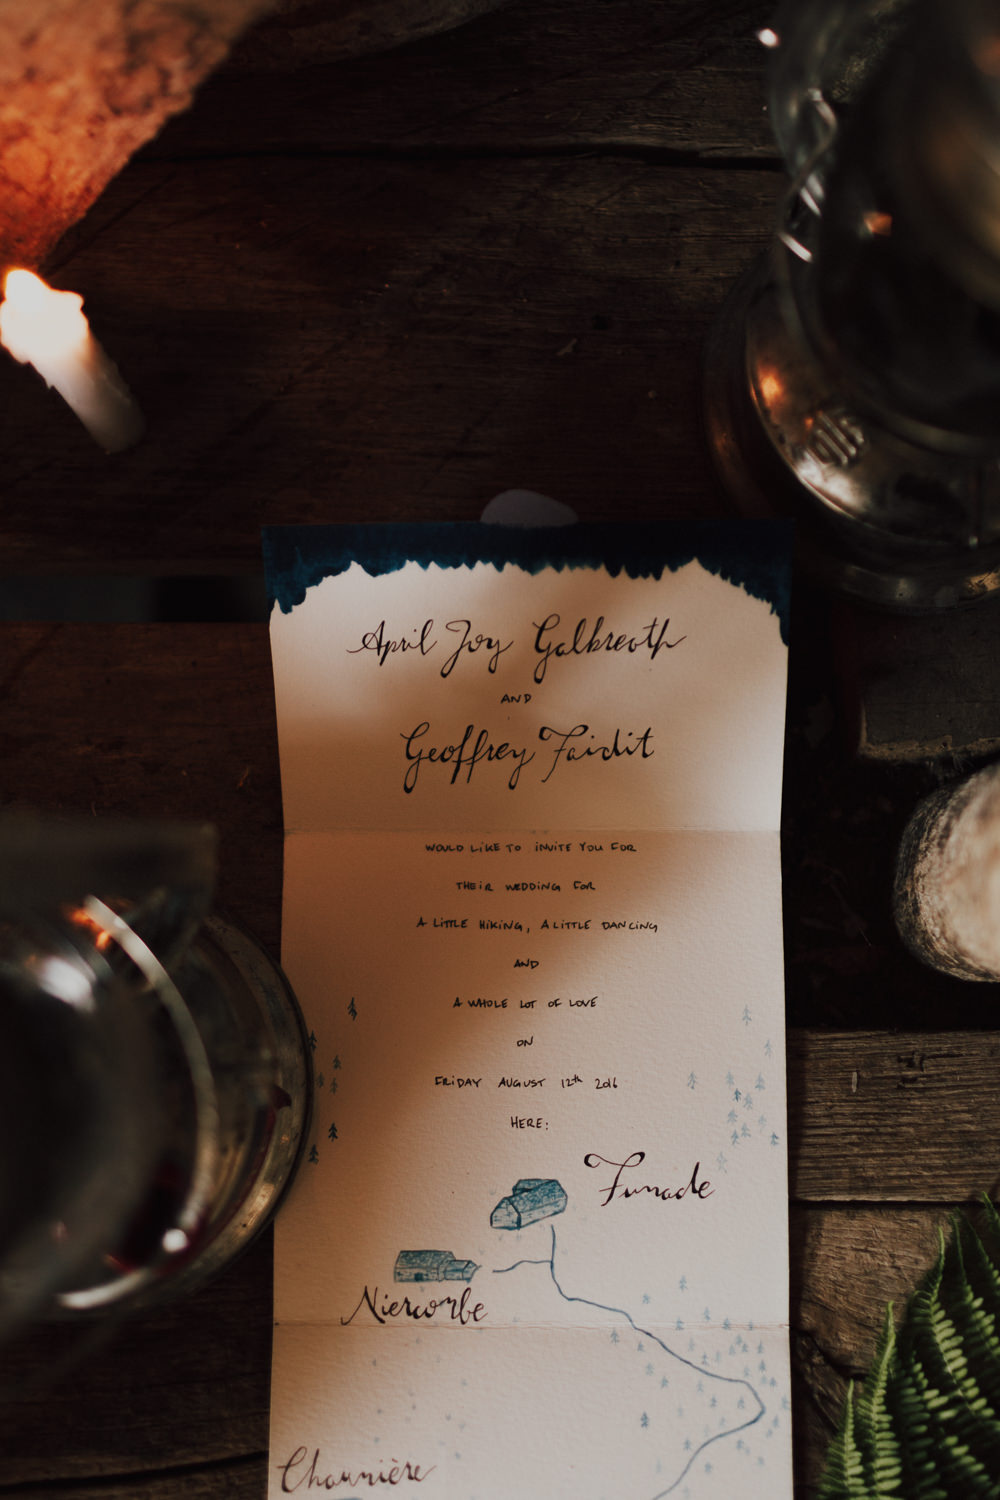 April Joy Galbreath
AND
Geoffrey Faidit
WOULD LIKE TO INVITE YOU FOR
THEIR WEDDING FOR
A LITTLE HIKING, A LITTLE DANCING
AND
A WHOLE LOT OF LOVE
ON
FRIDAY AUGUST 12th 2016
HERE:
Funade
Niercombe
Chaunière